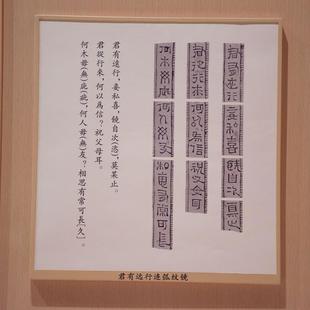 君有遠行 妾私喜 饒自次 莫止
君從行來 何以為信 祝父母耳
何木毋疵 何人毋友 相思有常可長
君有遠行，妾私喜，饒自次(恣)，莫某止。
君從行來，何以為信？祝父母耳。
何木毋(無)庇(疵)，何人毋(無)友？相思有常可長[久]。
君有远行连弧纹镜